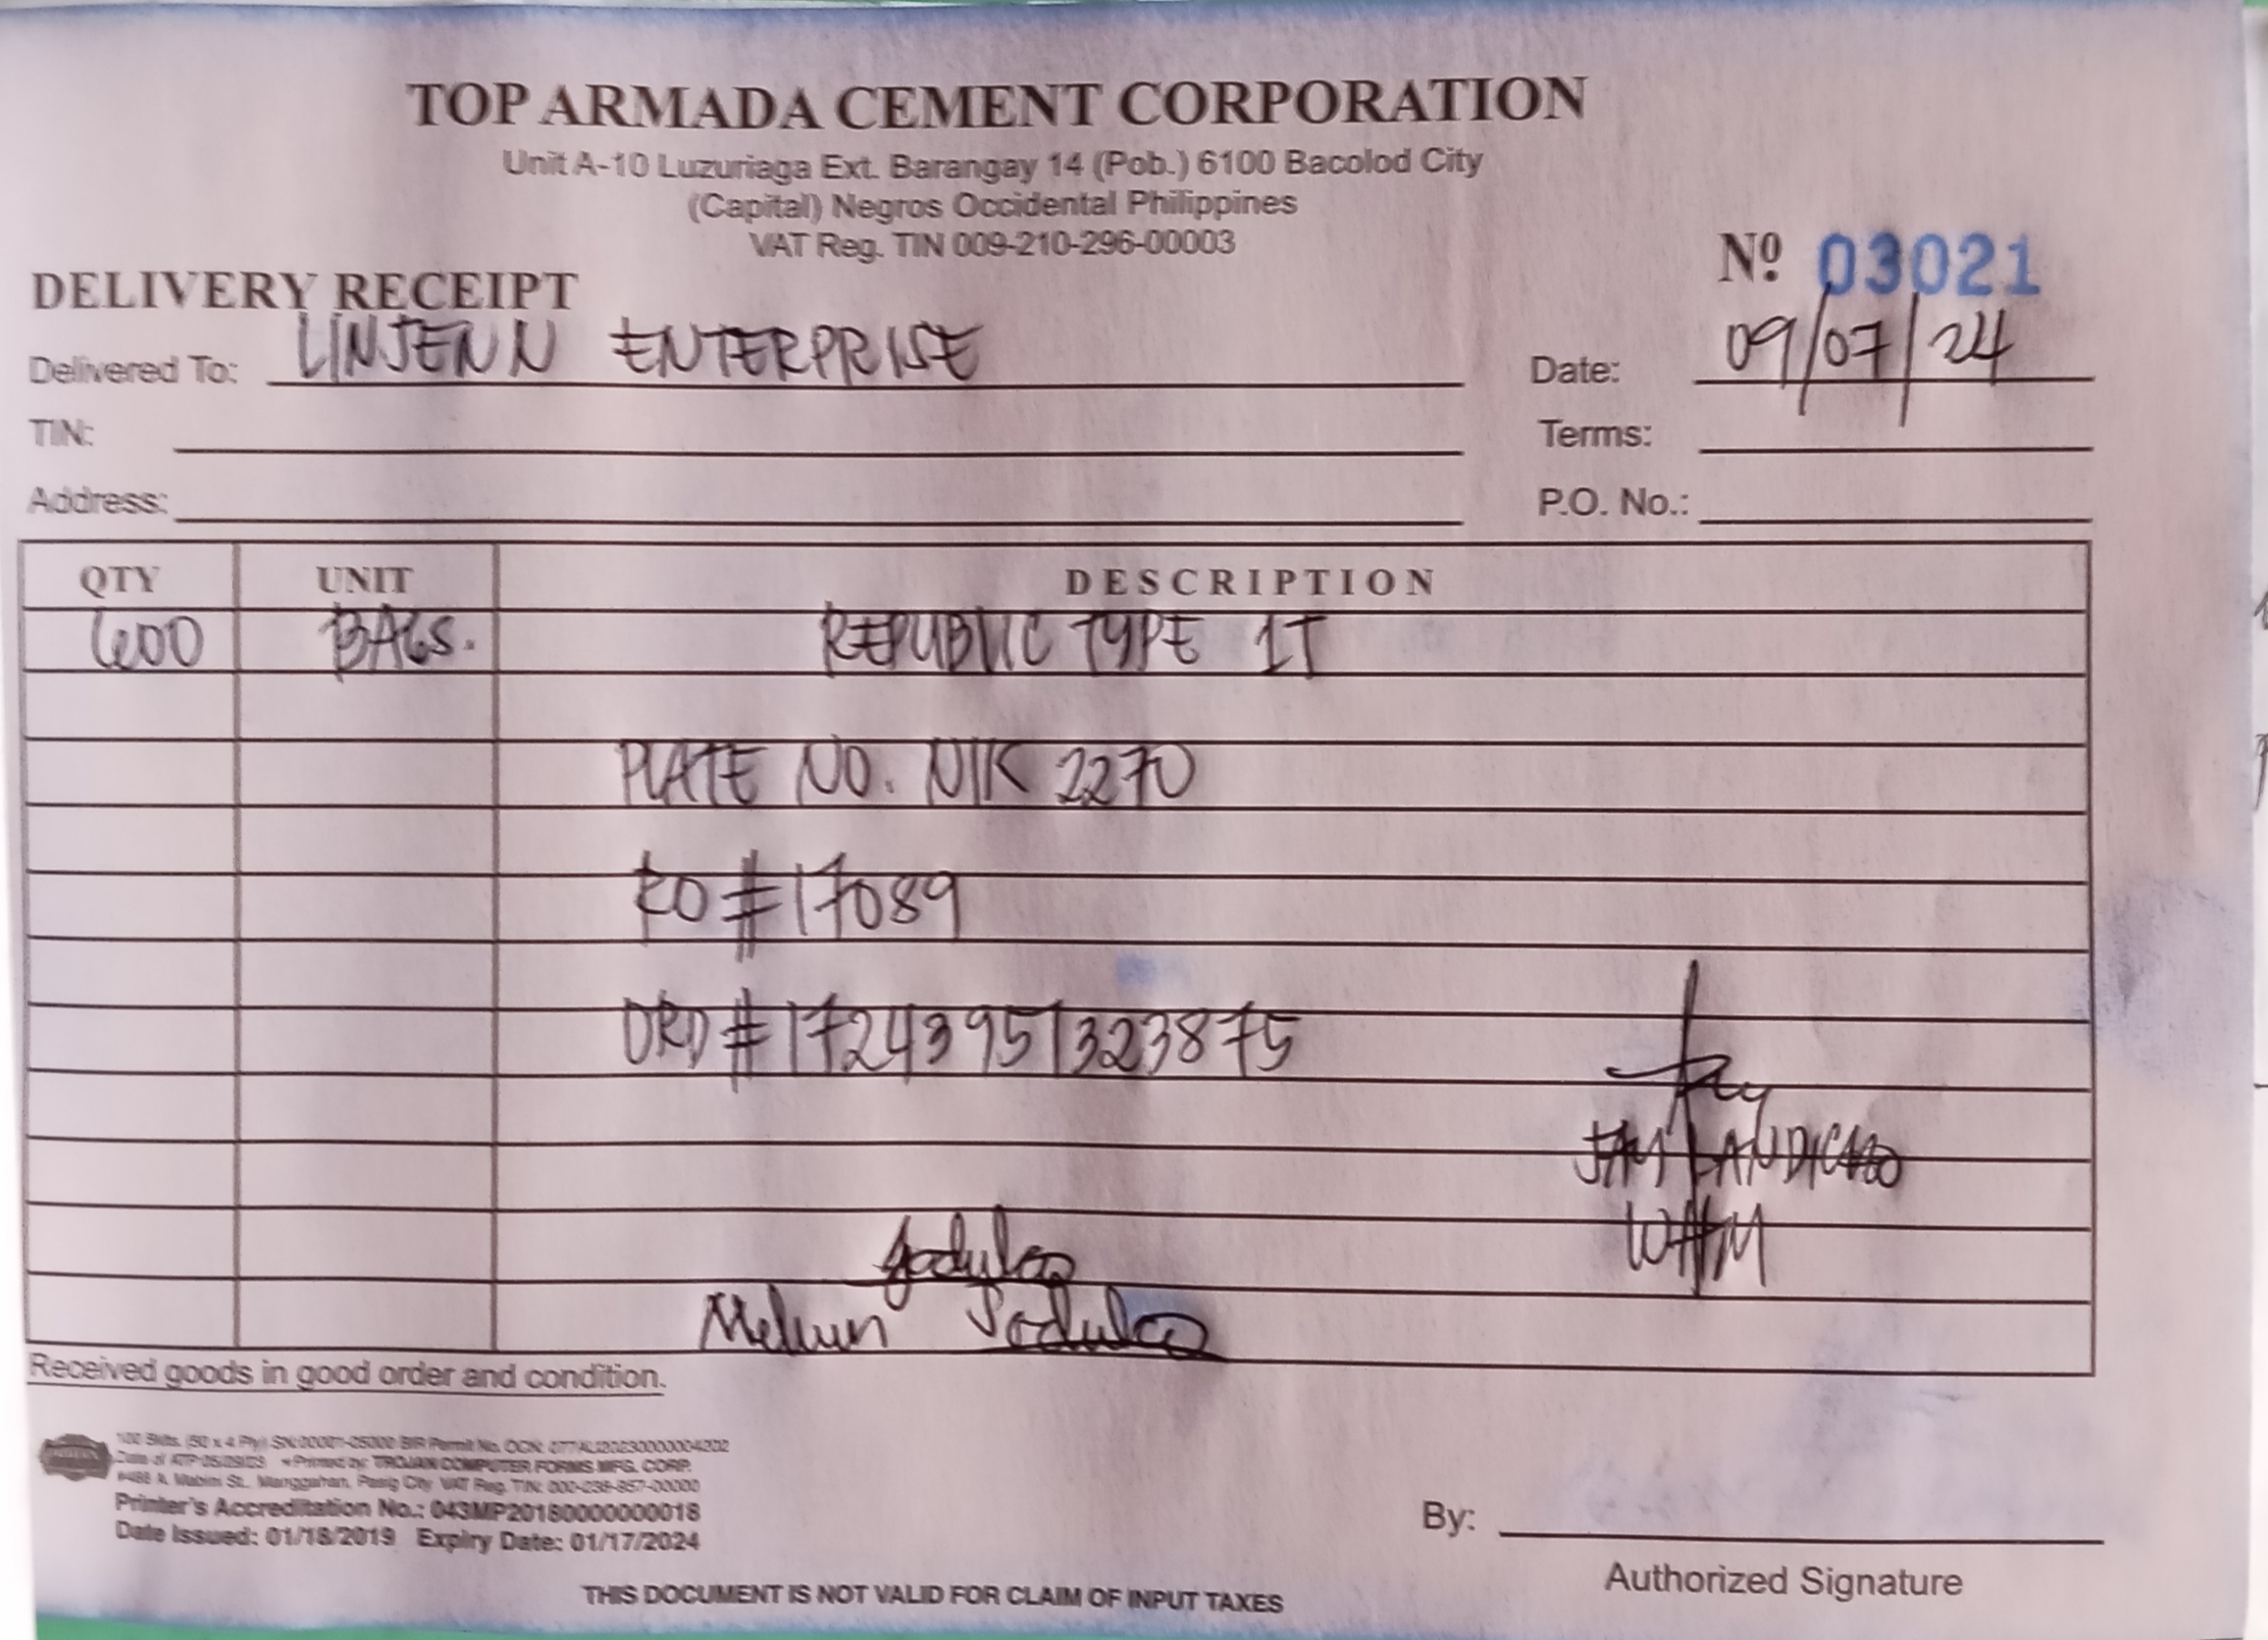 TOP ARMADA CEMENT CORPORATION
Unit A-10 Luzuriaga Ext. Barangay 14 (Pob.) 6100 Bacolod City
(Capital) Negros Occidental Philippines
VAT Reg. TIN 009-210-296-00003
Nº 03021
DELIVERY RECEIPT
Delivered To: LINJENN ENTERPRISE
Date: 09/07/24
TIN:
Terms:
Address:
P.O. No.:
QTY UNIT DESCRIPTION
600 BAGS. REPUBLIC TYPE 1T
PLATE NO. NIK 2270
RO #17089
ORD #17243951323875
JAM LANDICHO
WHM
Melvin Jodulco
Received goods in good order and condition.
100 Bklts. (50 x 4 Ply) SN:00001-05000 BIR Permit No. OCN: 077AU20230000004202
Date of ATP 05/09/23 • Printed by: TROJAN COMPUTER FORMS MFG. CORP.
#486 A. Mabini St., Manggahan, Pasig City VAT Reg. TIN: 000-238-857-00000
Printer's Accreditation No.: 043MP20180000000018
Date Issued: 01/18/2019 Expiry Date: 01/17/2024
By:
Authorized Signature
THIS DOCUMENT IS NOT VALID FOR CLAIM OF INPUT TAXES